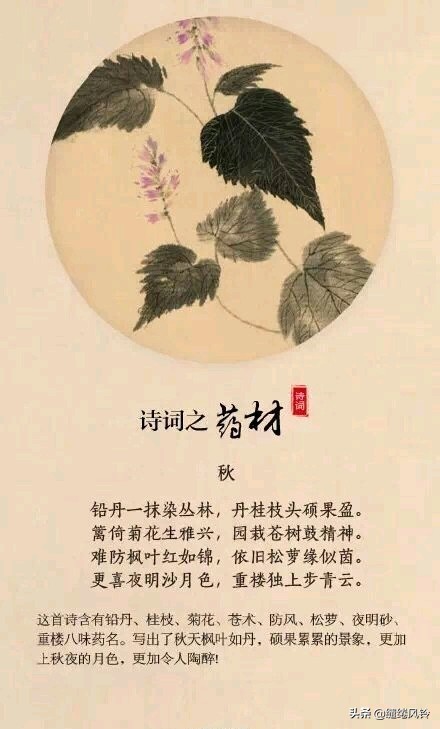 诗词之药材
诗词
秋
铅丹一抹染丛林，丹桂枝头硕果盈。
篱倚菊花生雅兴，园栽苍树鼓精神。
难防枫叶红如锦，依旧松萝缘似茵。
更喜夜明沙月色，重楼独上步青云。
这首诗含有铅丹、桂枝、菊花、苍术、防风、松萝、夜明砂、
重楼八味药名。写出了秋天枫叶如丹，硕果累累的景象，更加
上秋夜的月色，更加令人陶醉!
头条 @缠绻风铃